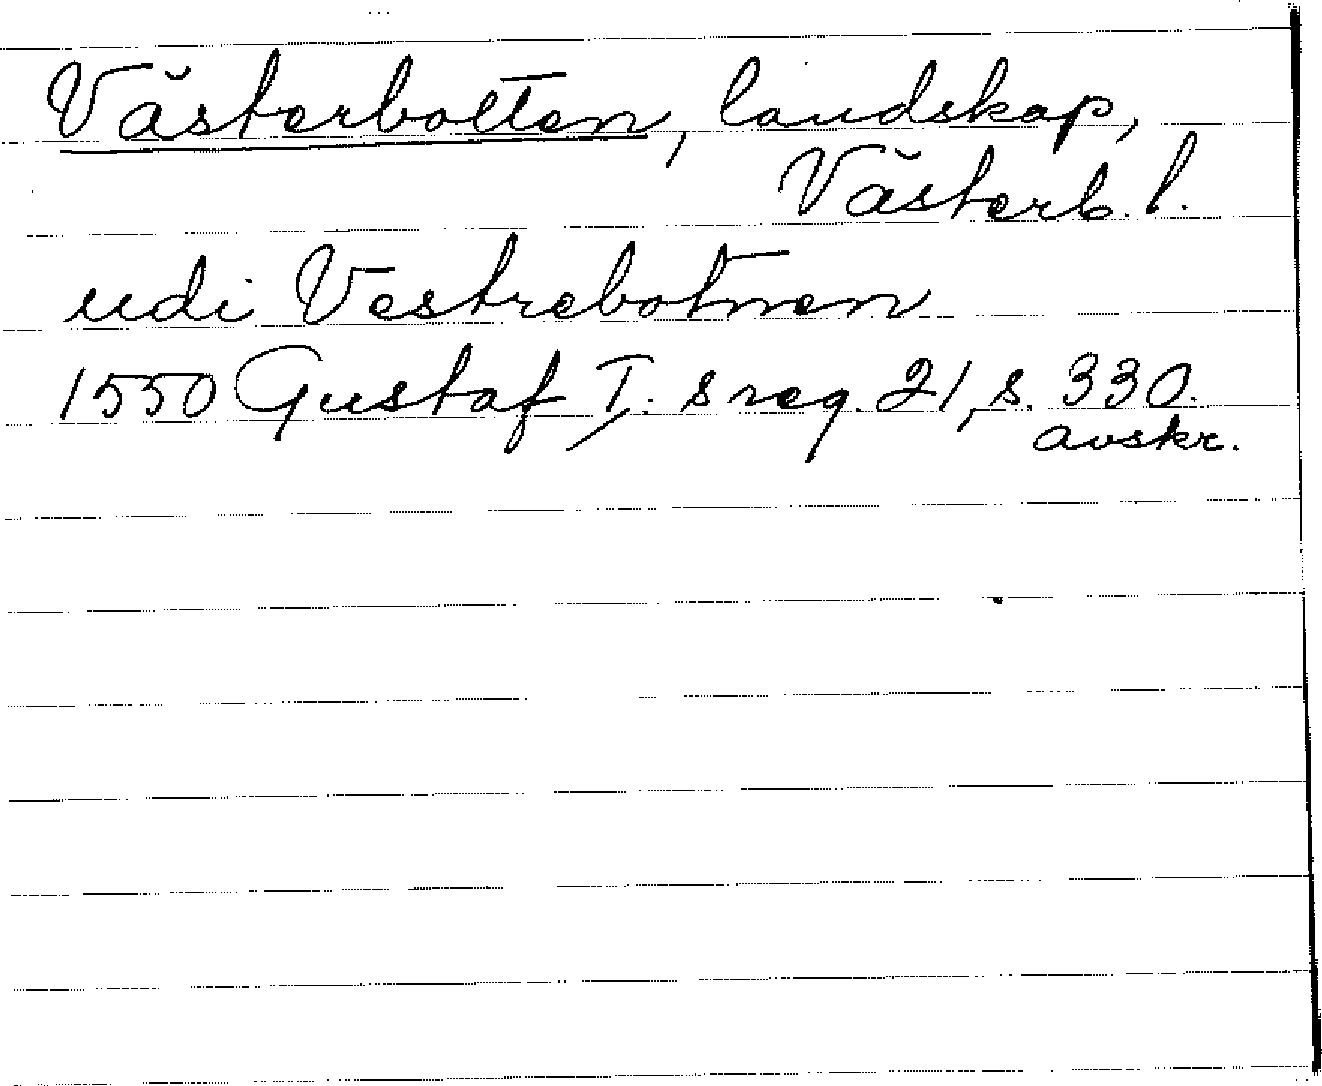 Västerbotten, landskap,
Västerb. l.
udi Vestrebotnen
1550 Gustaf I. s reg. 21, s. 330.
avskr.